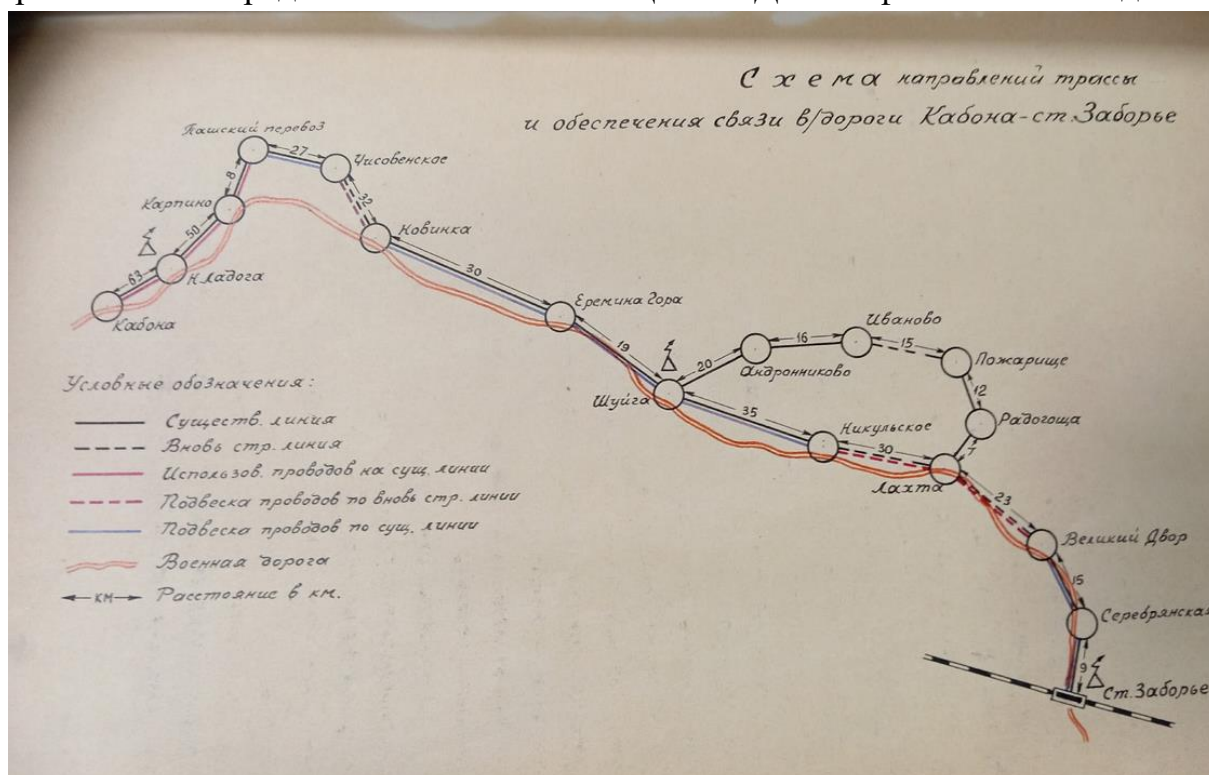 Схема направлений трассы
и обеспечения связи в/дороги Кабона-ст.Заборье
Пашский перевоз
27
Чисовенское
8
32
Карпино
50
Новинка
Н.Ладога
63
Кабона
30
Еремина Гора
19
Шуйга
20
Андронниково
16
Иваново
15
Пожарище
12
Радогоща
7
35
Никульское
30
Лахта
23
Великий Двор
15
Серебрянская
9
Ст.Заборье
Условные обозначения:
Существ. линия
Вновь стр. линия
Использов. проводов на сущ. линии
Подвеска проводов по вновь стр. линии
Подвеска проводов по сущ. линии
Военная дорога
КМ Расстояние в км.